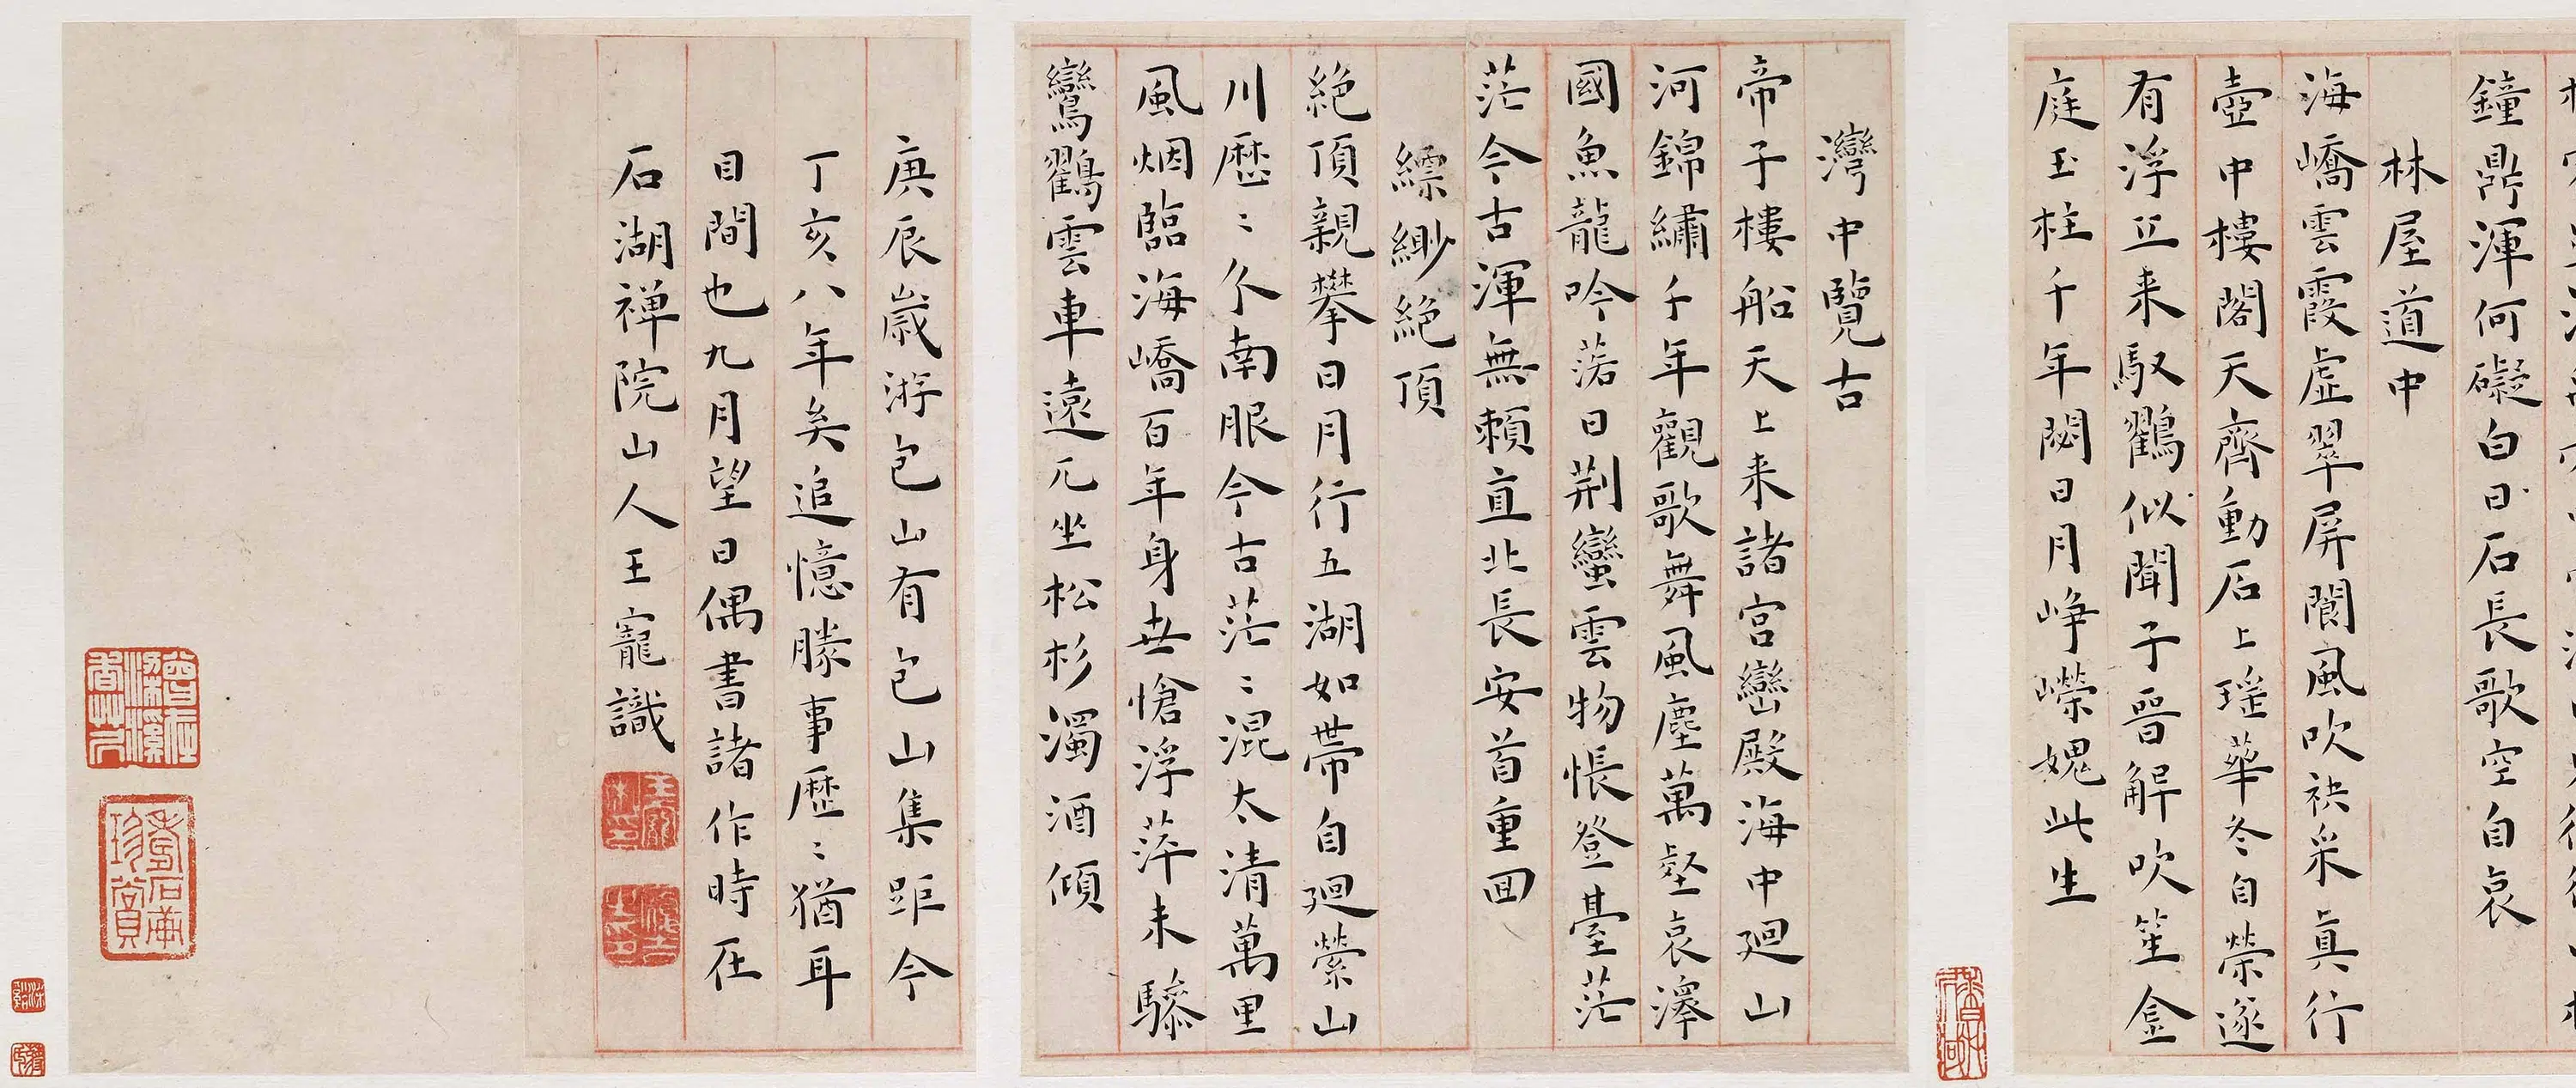 鐘鼎渾何礙白日石長歌空自哀
林屋道中
海嶠雲霞虛翠屏閬風吹袂采真行
壺中樓閣天齊動石上瑤華冬自榮遂
有浮丘来馭鶴似聞子晉解吹笙金
庭玉柱千年閟日月崢嶸媿此生
灣中覽古
帝子樓船天上来諸宮巒殿海中廻山
河錦繡千年觀歌舞風塵萬壑哀澤
國魚龍吟落日荆蠻雲物悵登臺茫
茫今古渾無賴直北長安首重回
縹緲絕頂
絕頂親攀日月行五湖如帶自廻縈山
川歷〻尒南服今古茫〻混太清萬里
風烟臨海嶠百年身世愴浮萍未驂
鸞鶴雲車遠兀坐松杉濁酒傾
庚辰歲游包山有包山集距今
丁亥八年矣追憶勝事歷〻猶耳
目間也九月望日偶書諸作時在
石湖禅院山人王寵識